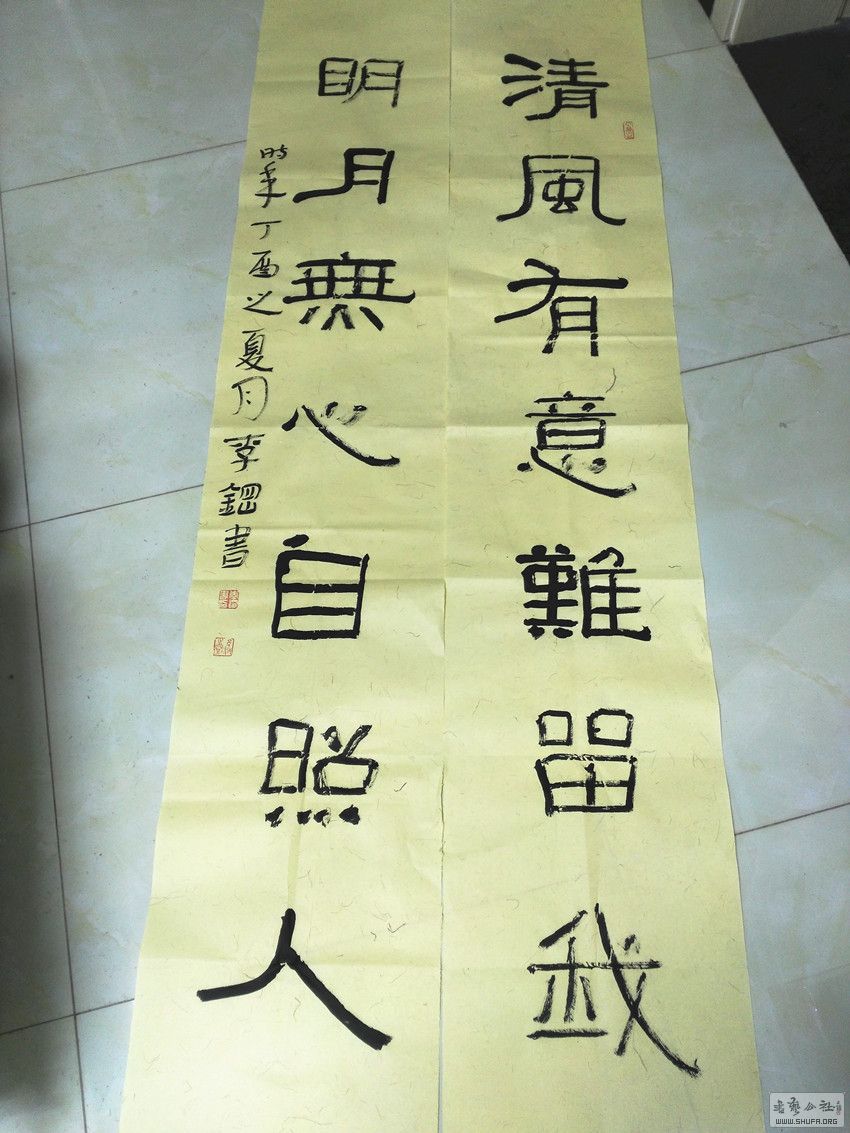 清風有意難留我
明月無心自照人
時年丁酉之夏月李鋼書
書藝公社
WWW.SHUFA.ORG